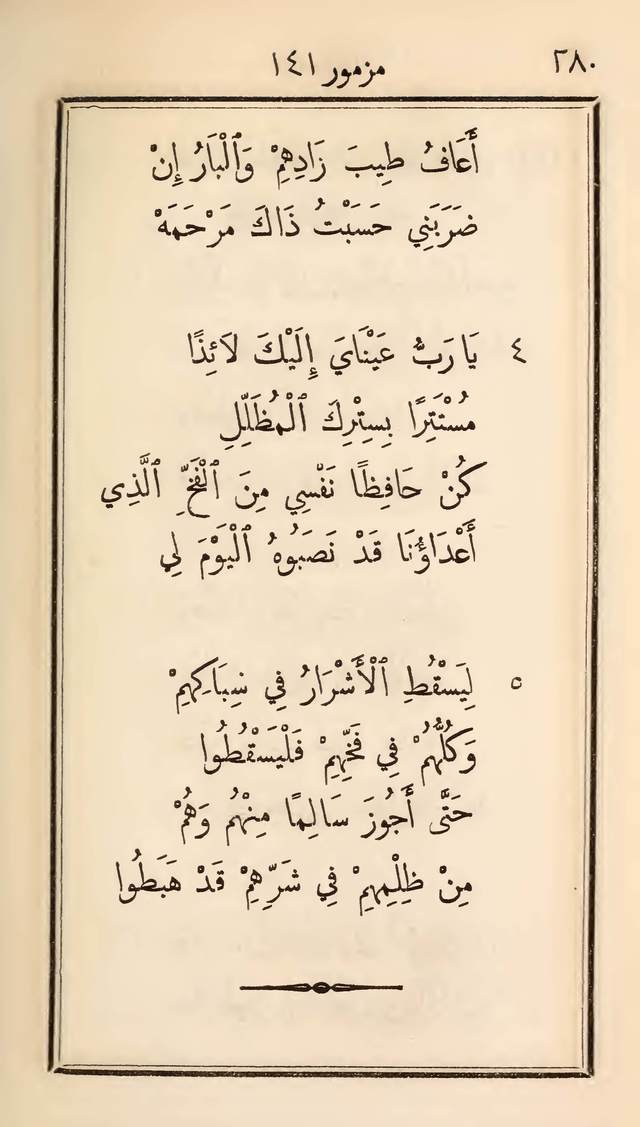 ٢٨٠
مزمور ١٤١
أَعَافُ طِيبَ زَادِهِمْ وَٱلْبَارُ إِنْ
ضَرَبَنِي حَسَبْتُ ذَاكَ مَرْحَمَهْ
٤ يَا رَبُّ عَيْنَايَ إِلَيْكَ لَائِذًا
مُسْتَتِرًا بِسِتْرِكَ ٱلْمُظَلِّلِ
كُنْ حَافِظًا نَفْسِي مِنَ ٱلْفَخِّ ٱلَّذِي
أَعْدَاؤُنَا قَدْ نَصَبُوهُ ٱلْيَوْمَ لِي
٥ لِيَسْقُطِ ٱلْأَشْرَارُ فِي شِبَاكِهِمْ
وَكُلُّهُمْ فِي فَخِّهِمْ فَلْيَسْقُطُوا
حَتَّى أَجُوزَ سَالِمًا مِنْهُمْ وَهُمْ
مِنْ ظُلْمِهِمْ فِي شَرِّهِمْ قَدْ هَبَطُوا